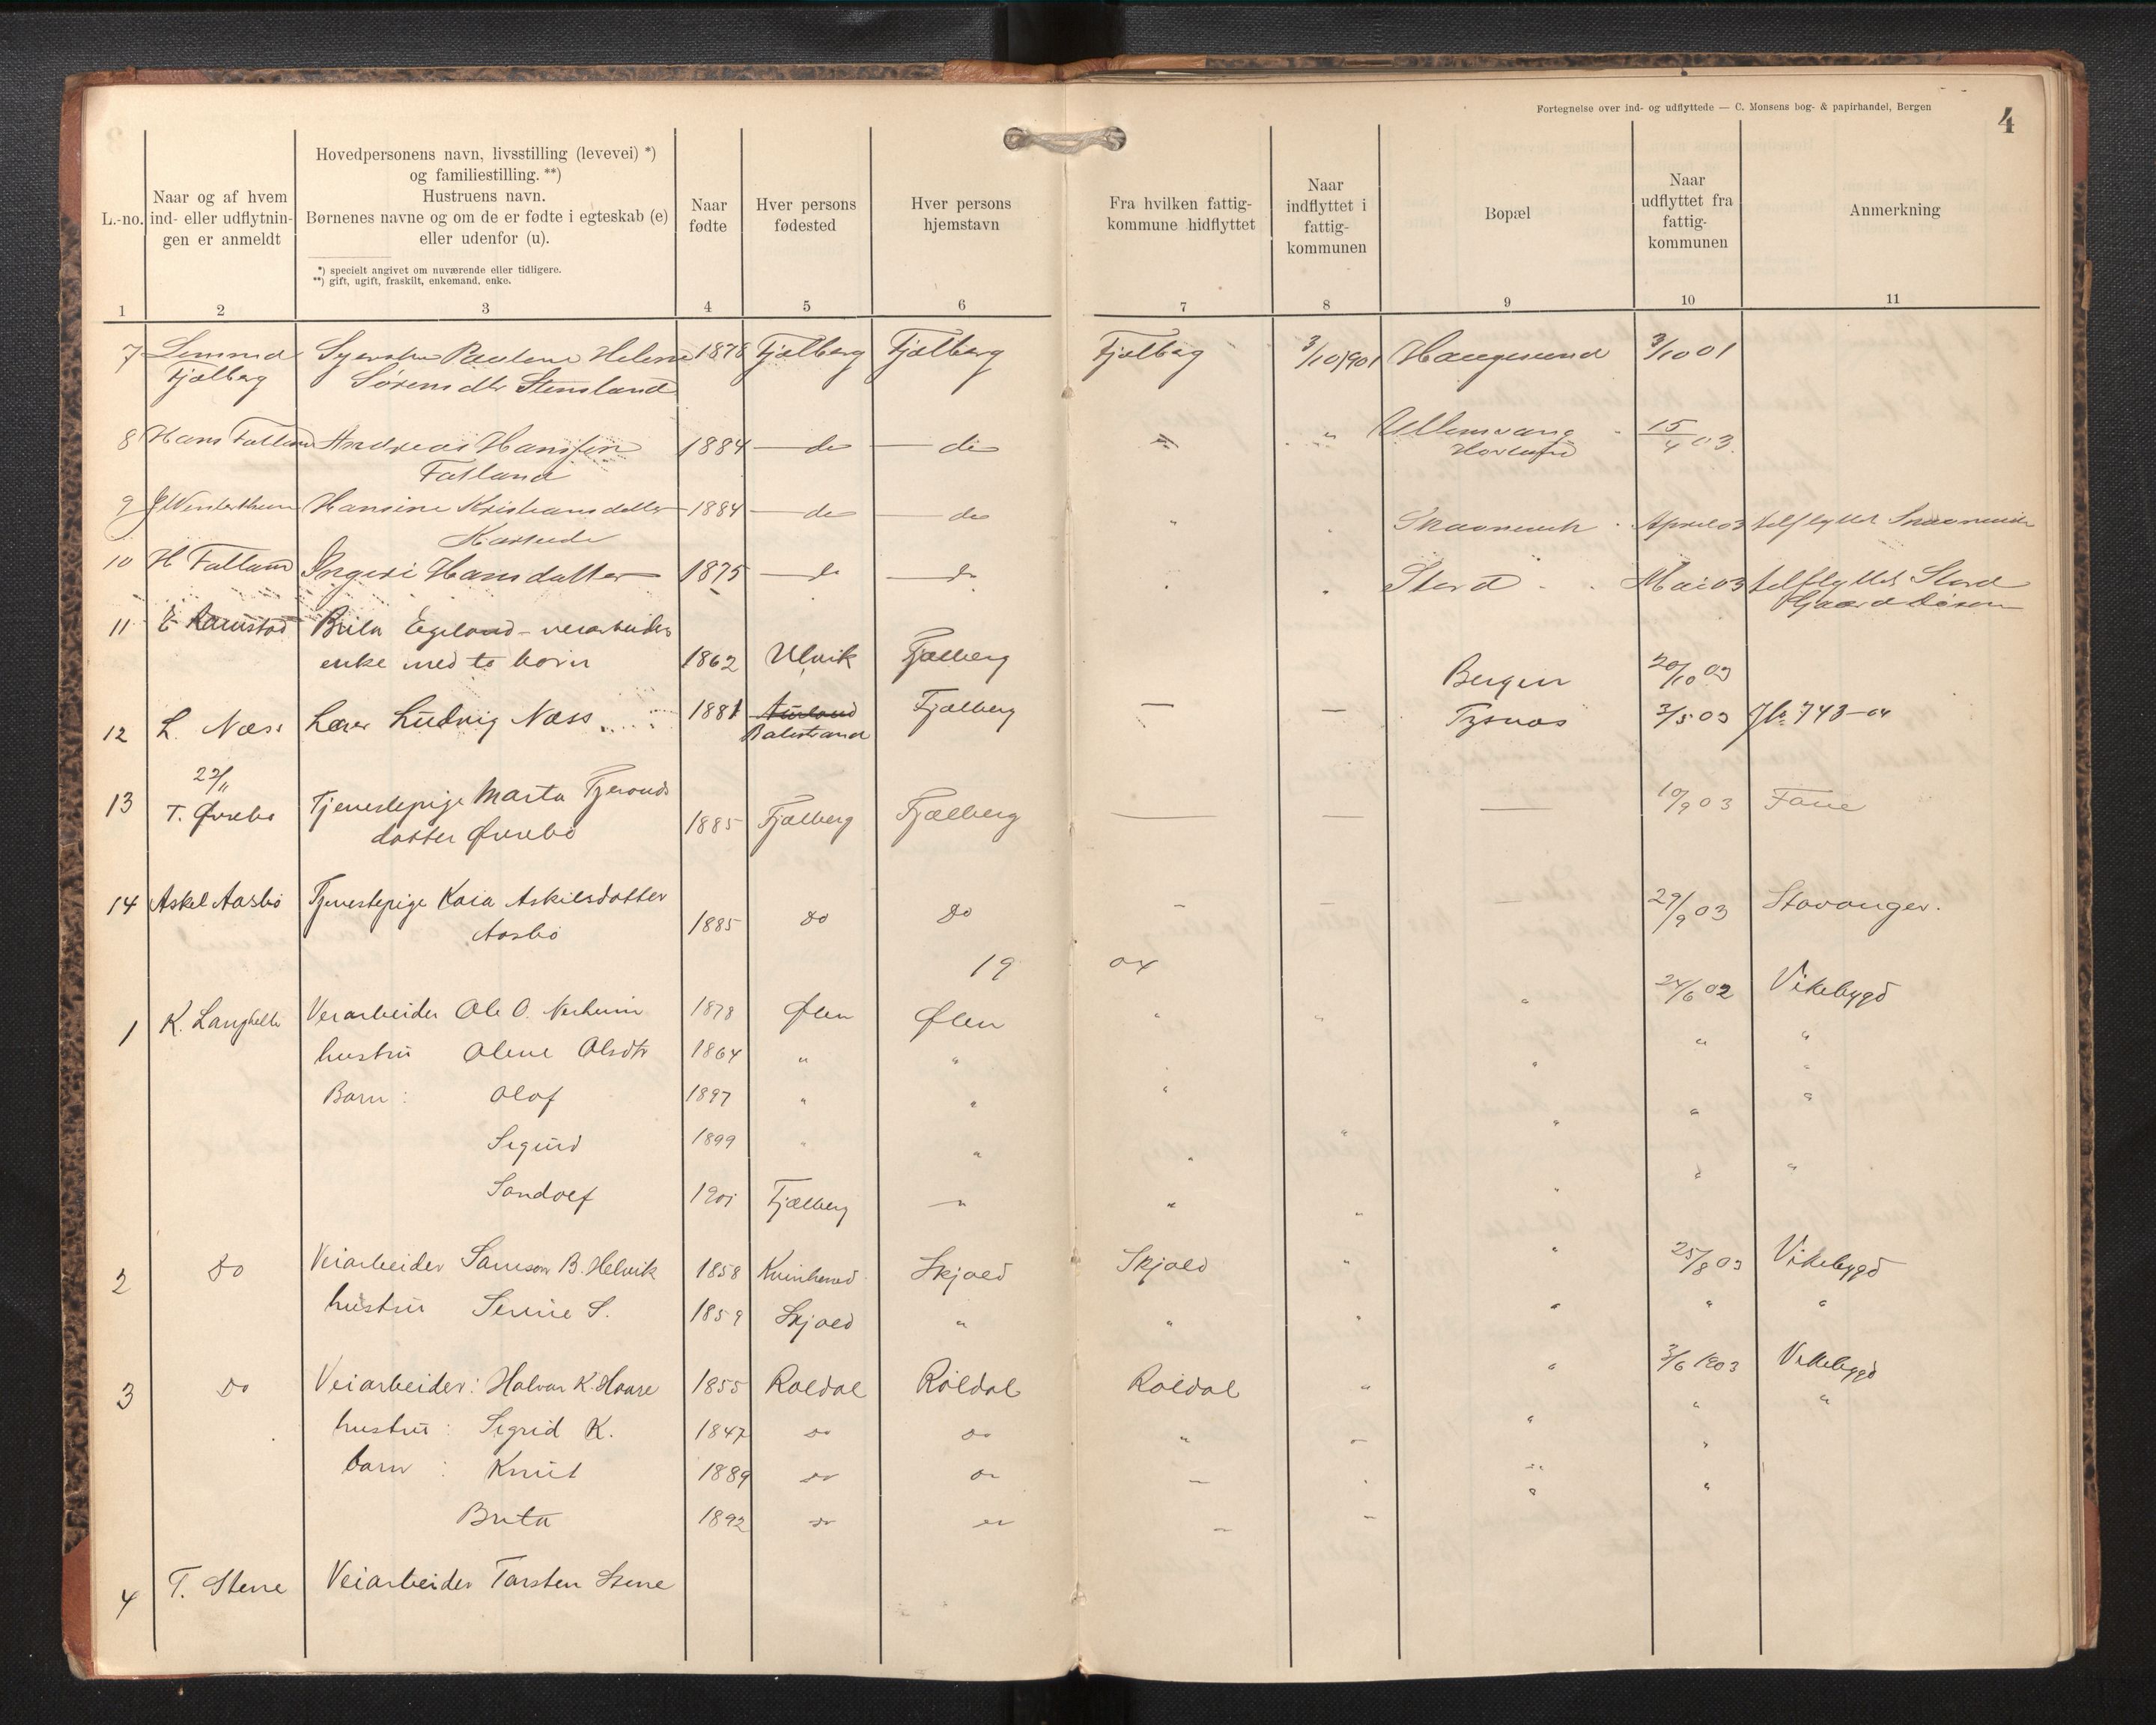 Fortegnelse over ind- og udflyttede — C. Monsens bog- & papirhandel, Bergen
4
L.-no.
Naar og af hvem ind- eller udflytnin-gen er anmeldt
Hovedpersonens navn, livsstilling (levevei) *)
og familiestilling. **)
Hustruens navn.
Børnenes navne og om de er fødte i egteskab (e)
eller udenfor (u).
*) specielt angivet om nuværende eller tidligere.
**) gift, ugift, fraskilt, enkemand, enke.
Naar fødte
Hver persons fødested
Hver persons hjemstavn
Fra hvilken fattig-kommune hidflyttet
Naar indflyttet i fattig-kommunen
Bopæl
Naar udflyttet fra fattig-kommunen
Anmerkning
1 2 3 4 5 6 7 8 9 10 11
7 Paulene Helene 1878 Fjælberg Fjælberg Fjælberg 3/10 1901 Haugesund 3/10 01
Fjælberg Sørensdtr Stensland
8 Hans Fatland Andreas Hansen 1884 — do — do " Ullensvang 15/4 03
Fatland
9 Hansine Kristiansdatter 1884 — do — do " Skaanevik April 03 tilflyttet Skaanevik
10 H Fatland Ingeri Hansdatter 1875 — do — do " Stord Mai 03 tilflyttet Stord
Gaard
11 Ramstad Brita Egeland – veiarbeider
enke med to børn 1862 Ulvik Fjælberg Bergen 20/10 03
12 L. Næss Lærer Ludvig Næss 1881 Aurland Fjælberg — — Tysnæs 3/5 03 743–04
Balestrand
13 22/11
T. Øvrebø Tjenestepige Marta Tjeronds
datter Øvrebø 1885 Fjælberg Fjælberg — — — 10/9 03 Fane
14 Askel Aasbø Tjenestepige Kaia Askilsdatter
Aasbø 1885 do do - - - 29/9 03 Stavanger.
19 04
1 K. Langhelle Veiarbeider Ole O. Nerheim 1878 Ølen Ølen " " " 24/6 02 Vikebygd
hustru Olene Olsdtr 1864 " " " " "
Barn: Olaf 1897 " " " " " "
Sigurd 1899 " " " " " "
Sandolf 1901 Fjælberg " " " "
2 do Veiarbeider Samson B. Helvik 1858 Kvinherred Skjold Skjold " " 25/8 03 Vikebygd
hustru Serine S. 1859 Skjold " " " " " "
3 do Veiarbeider: Halvor K. Haare 1855 Røldal Røldal Røldal " " 3/6 1903 Vikebygd
hustru: Sigrid K. 1847 do do " " " " "
barn: Knut 1889 do do " " " "
Brita 1892 do do " " " "
4 T. Stene Veiarbeider Torsten Stene